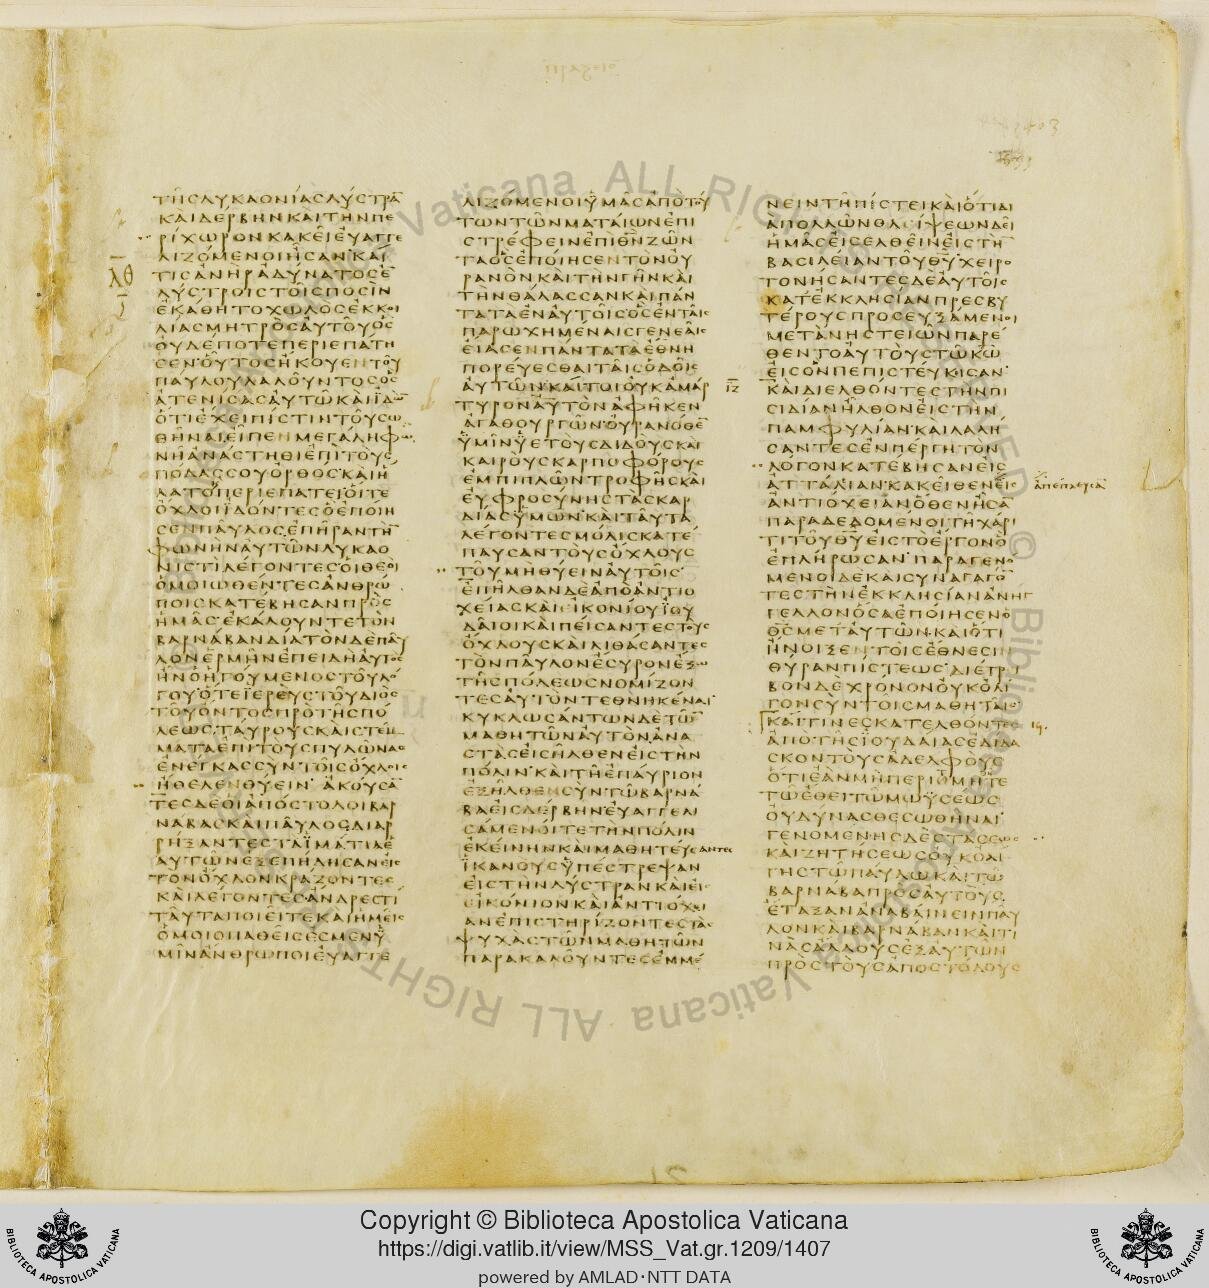 ΤΗΣΛΥΚΑΟΝΙΑΣΛΥΣΤΡΑ̅
ΚΑΙΔΕΡΒΗΝΚΑΙΤΗΝΠΕ
ΡΙΧΩΡΟΝΚΑΚΕΙΕΥΑΓΓΕ
ΛΙΖΟΜΕΝΟΙΗΣΑΝΚΑΙ
ΤΙΣΑΝΗΡΑΔΥΝΑΤΟΣΕ̅
ΛΥΣΤΡΟΙΣΤΟΙΣΠΟΣΙΝ
ΕΚΑΘΗΤΟΧΩΛΟΣΕΚΚΟΙ
ΛΙΑΣΜΗΤΡΟΣΑΥΤΟΥΟΣ
ΟΥΔΕΠΟΤΕΠΕΡΙΕΠΑΤΗ
ΣΕΝΟΥΤΟΣΗΚΟΥΕΝΤΟΥ
ΠΑΥΛΟΥΛΑΛΟΥΝΤΟΣΟΣ
ΑΤΕΝΙΣΑΣΑΥΤΩΚΑΙΙΔΩ̅
ΟΤΙΕΧΕΙΠΙΣΤΙΝΤΟΥΣΩ
ΘΗΝΑΙΕΙΠΕΝΜΕΓΑΛΗΦΩ
ΝΗΑΝΑΣΤΗΘΙΕΠΙΤΟΥΣ
ΠΟΔΑΣΣΟΥΟΡΘΟΣΚΑΙΗ
ΛΑΤΟΠΕΡΙΕΠΑΤΕΙΟΙΤΕ
ΟΧΛΟΙΙΔΟΝΤΕΣΟΕΠΟΙΗ
ΣΕΝΠΑΥΛΟΣΕΠΗΡΑΝΤΗ̅
ΦΩΝΗΝΑΥΤΩΝΛΥΚΑΟ
ΝΙΣΤΙΛΕΓΟΝΤΕΣΟΙΘΕΟΙ
ΟΜΟΙΩΘΕΝΤΕΣΑΝΘΡΩ
ΠΟΙΣΚΑΤΕΒΗΣΑΝΠΡΟΣ
ΗΜΑΣΕΚΑΛΟΥΝΤΕΤΟΝ
ΒΑΡΝΑΒΑΝΔΙΑΤΟΝΔΕΠΑΥ
ΛΟΝΕΡΜΗΝΕΠΕΙΔΗΑΥΤΟΣ
ΗΝΟΗΓΟΥΜΕΝΟΣΤΟΥΛΟ
ΓΟΥΟΤΕΪΕΡΕΥΣΤΟΥΔΙΟΣ
ΤΟΥΟΝΤΟΣΠΡΟΤΗΣΠΟ
ΛΕΩΣΤΑΥΡΟΥΣΚΑΙΣΤΕΜ
ΜΑΤΑΕΠΙΤΟΥΣΠΥΛΩΝΑΣ
ΕΝΕΓΚΑΣΣΥΝΤΟΙΣΟΧΛΟΙΣ
ΗΘΕΛΕΝΘΥΕΙΝ·ΑΚΟΥΣΑ̅
ΤΕΣΔΕΟΙΑΠΟΣΤΟΛΟΙΒΑΡ
ΝΑΒΑΣΚΑΙΠΑΥΛΟΣΔΙΑΡ
ΡΗΞΑΝΤΕΣΤΑΪΜΑΤΙΑΕ
ΑΥΤΩΝΕΞΕΠΗΔΗΣΑΝΕΙΣ
ΤΟΝΟΧΛΟΝΚΡΑΖΟΝΤΕΣ
ΚΑΙΛΕΓΟΝΤΕΣΑΝΔΡΕΣΤΙ
ΤΑΥΤΑΠΟΙΕΙΤΕΚΑΙΗΜΕΙΣ
ΟΜΟΙΟΠΑΘΕΙΣΕΣΜΕΝΫ
ΜΙΝΑΝΘΡΩΠΟΙΕΥΑΓΓΕ
ΛΙΖΟΜΕΝΟΙΫΜΑΣΑΠΟΤΟΥ
ΤΩΝΤΩΝΜΑΤΑΙΩΝΕΠΙ
ΣΤΡΕΦΕΙΝΕΠΙΘ̅Ν̅ΖΩΝ
ΤΑΟΣΕΠΟΙΗΣΕΝΤΟΝΟΥ
ΡΑΝΟΝΚΑΙΤΗΝΓΗΝΚΑΙ
ΤΗΝΘΑΛΑΣΣΑΝΚΑΙΠΑΝ
ΤΑΤΑΕΝΑΥΤΟΙΣΟΣΕΝΤΑΙΣ
ΠΑΡΩΧΗΜΕΝΑΙΣΓΕΝΕΑΙΣ
ΕΙΑΣΕΝΠΑΝΤΑΤΑΕΘΝΗ
ΠΟΡΕΥΕΣΘΑΙΤΑΙΣΟΔΟΙΣ
ΑΥΤΩΝΚΑΙΤΟΙΟΥΚΑΜΑΡ
ΤΥΡΟΝΑΥΤΟΝΑΦΗΚΕΝ
ΑΓΑΘΟΥΡΓΩΝΟΥΡΑΝΟΘΕ̅
ΫΜΙΝΫΕΤΟΥΣΔΙΔΟΥΣΚΑΙ
ΚΑΙΡΟΥΣΚΑΡΠΟΦΟΡΟΥΣ
ΕΜΠΙΠΛΩΝΤΡΟΦΗΣΚΑΙ
ΕΥΦΡΟΣΥΝΗΣΤΑΣΚΑΡ
ΔΙΑΣΫΜΩΝ·ΚΑΙΤΑΥΤΑ
ΛΕΓΟΝΤΕΣΜΟΛΙΣΚΑΤΕ
ΠΑΥΣΑΝΤΟΥΣΟΧΛΟΥΣ
ΤΟΥΜΗΘΥΕΙΝΑΥΤΟΙΣ
ΕΠΗΛΘΑΝΔΕΑΠΟΑΝΤΙΟ
ΧΕΙΑΣΚΑΙΕΙΚΟΝΙΟΥΪΟΥ
ΔΑΙΟΙΚΑΙΠΕΙΣΑΝΤΕΣΤΟΥΣ
ΟΧΛΟΥΣΚΑΙΛΙΘΑΣΑΝΤΕΣ
ΤΟΝΠΑΥΛΟΝΕΣΥΡΟΝΕΞΩ
ΤΗΣΠΟΛΕΩΣΝΟΜΙΖΟΝ
ΤΕΣΑΥΤΟΝΤΕΘΝΗΚΕΝΑΙ
ΚΥΚΛΩΣΑΝΤΩΝΔΕΤΩ̅
ΜΑΘΗΤΩΝΑΥΤΟΝΑΝΑ
ΣΤΑΣΕΙΣΗΛΘΕΝΕΙΣΤΗΝ
ΠΟΛΙΝ·ΚΑΙΤΗΕΠΑΥΡΙΟΝ
ΕΞΗΛΘΕΝΣΥΝΤΩΒΑΡΝΑ
ΒΑΕΙΣΔΕΡΒΗΝΕΥΑΓΓΕΛΙ
ΣΑΜΕΝΟΙΤΕΤΗΝΠΟΛΙΝ
ΕΚΕΙΝΗΝΚΑΙΜΑΘΗΤΕΥΣΑΝΤΕΣ
ΪΚΑΝΟΥΣΫΠΕΣΤΡΕΨΑΝ
ΕΙΣΤΗΝΛΥΣΤΡΑΝΚΑΙΕΙΣ
ΕΙΚΟΝΙΟΝΚΑΙΑΝΤΙΟΧΕΙ
ΑΝΕΠΙΣΤΗΡΙΖΟΝΤΕΣΤΑΣ
ΨΥΧΑΣΤΩΝΜΑΘΗΤΩΝ
ΠΑΡΑΚΑΛΟΥΝΤΕΣΕΜΜΕ
ΝΕΙΝΤΗΠΙΣΤΕΙΚΑΙΟΤΙΔΙΑ
ΠΟΛΛΩΝΘΛΕΙΨΕΩΝΔΕΙ
ΗΜΑΣΕΙΣΕΛΘΕΙΝΕΙΣΤΗ̅
ΒΑΣΙΛΕΙΑΝΤΟΥΘ̅Υ̅ΧΕΙΡΟ
ΤΟΝΗΣΑΝΤΕΣΔΕΑΥΤΟΙΣ
ΚΑΤΕΚΚΛΗΣΙΑΝΠΡΕΣΒΥ
ΤΕΡΟΥΣΠΡΟΣΕΥΞΑΜΕΝΟΙ
ΜΕΤΑΝΗΣΤΕΙΩΝΠΑΡΕ
ΘΕΝΤΟΑΥΤΟΥΣΤΩΚ̅Ω̅
ΕΙΣΟΝΠΕΠΙΣΤΕΥΚΙΣΑΝ
ΚΑΙΔΙΕΛΘΟΝΤΕΣΤΗΝΠΙ
ΣΙΔΙΑΝΗΛΘΟΝΕΙΣΤΗΝ
ΠΑΜΦΥΛΙΑΝΚΑΙΛΑΛΗ
ΣΑΝΤΕΣΕΝΠΕΡΓΗΤΟΝ
ΛΟΓΟΝΚΑΤΕΒΗΣΑΝΕΙΣ
ΑΤΤΑΛΙΑΝΚΑΚΕΙΘΕΝΕΙΣ
ΑΝΤΙΟΧΕΙΑΝΟΘΕΝΗΣΑ̅
ΠΑΡΑΔΕΔΟΜΕΝΟΙΤΗΧΑΡΙ
ΤΙΤΟΥΘ̅Υ̅ΕΙΣΤΟΕΡΓΟΝΟ
ΕΠΛΗΡΩΣΑΝ·ΠΑΡΑΓΕΝΟ
ΜΕΝΟΙΔΕΚΑΙΣΥΝΑΓΑΓΟ̅
ΤΕΣΤΗΝΕΚΚΛΗΣΙΑΝΑΝΗΓ
ΓΕΛΛΟΝΟΣΑΕΠΟΙΗΣΕΝΟ
Θ̅Σ̅ΜΕΤΑΥΤΩΝ·ΚΑΙΟΤΙ
ΗΝΟΙΞΕΝΤΟΙΣΕΘΝΕΣΙΝ
ΘΥΡΑΝΠΙΣΤΕΩΣΔΙΕΤΡΙ
ΒΟΝΔΕΧΡΟΝΟΝΟΥΚΟΛΙ
ΓΟΝΣΥΝΤΟΙΣΜΑΘΗΤΑΙΣ
ΚΑΙΤΙΝΕΣΚΑΤΕΛΘΟΝΤΕΣ
ΑΠΟΤΗΣΪΟΥΔΑΙΑΣΕΔΙΔΑ
ΣΚΟΝΤΟΥΣΑΔΕΛΦΟΥΣ
ΟΤΙΕΑΝΜΗΠΕΡΙΤΜΗΤΕ
ΤΩΕΘΕΙΤΩΜΩΫΣΕΩΣ
ΟΥΔΥΝΑΣΘΕΣΩΘΗΝΑΙ
ΓΕΝΟΜΕΝΗΣΔΕΣΤΑΣΕΩΣ
ΚΑΙΖΗΤΗΣΕΩΣΟΥΚΟΛΙ
ΓΗΣΤΩΠΑΥΛΩΚΑΙΤΩ
ΒΑΡΝΑΒΑΠΡΟΣΑΥΤΟΥΣ
ΕΤΑΞΑΝΑΝΑΒΑΙΝΕΙΝΠΑΥ
ΛΟΝΚΑΙΒΑΡΝΑΒΑΝΚΑΙΤΙ
ΝΑΣΑΛΛΟΥΣΕΞΑΥΤΩΝ
ΠΡΟΣΤΟΥΣΑΠΟΣΤΟΛΟΥΣ
Λ̅Θ̅
Ι̅Ζ̅
ἀπέπλευσα̅
Copyright © Biblioteca Apostolica Vaticana
https://digi.vatlib.it/view/MSS_Vat.gr.1209/1407
powered by AMLAD·NTT DATA